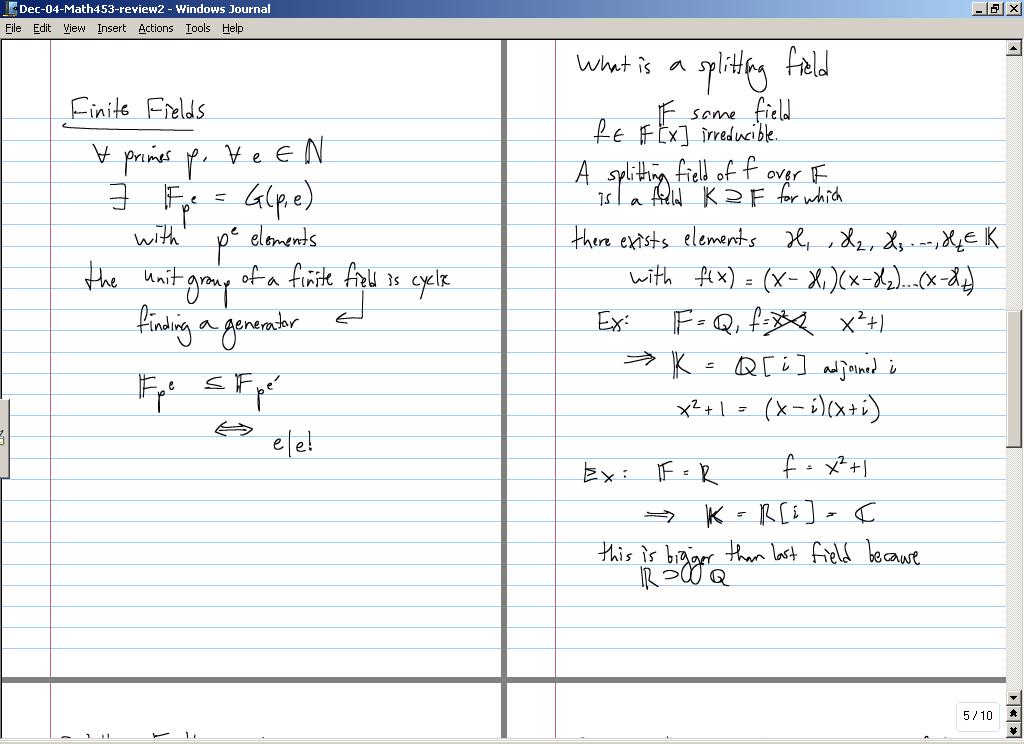 Dec-04-Math453-review2 - Windows Journal
File Edit View Insert Actions Tools Help
Finite Fields
∀ primes p, ∀ e ∈ ℕ
∃ 𝔽_{p^e} = G(p,e)
with p^e elements
the unit group of a finite field is cyclic
finding a generator ↵
𝔽_{p^e} ≤ 𝔽_{p^{e'}}
⟺ e|e'
What is a splitting field
𝔽 some field
f ∈ 𝔽[x] irreducible.
A splitting field of f over 𝔽
is a field 𝕂 ⊇ 𝔽 for which
there exists elements α₁, α₂, α₃ ..., α_t ∈ 𝕂
with f(x) = (x-α₁)(x-α₂)...(x-α_t)
Ex: 𝔽 = ℚ, f = x²+1
⟹ 𝕂 = ℚ[i] adjoined i
x²+1 = (x-i)(x+i)
Ex: 𝔽 = ℝ f = x²+1
⟹ 𝕂 = ℝ[i] = ℂ
this is bigger than last field because
ℝ ⊃ ℚ
5 / 10